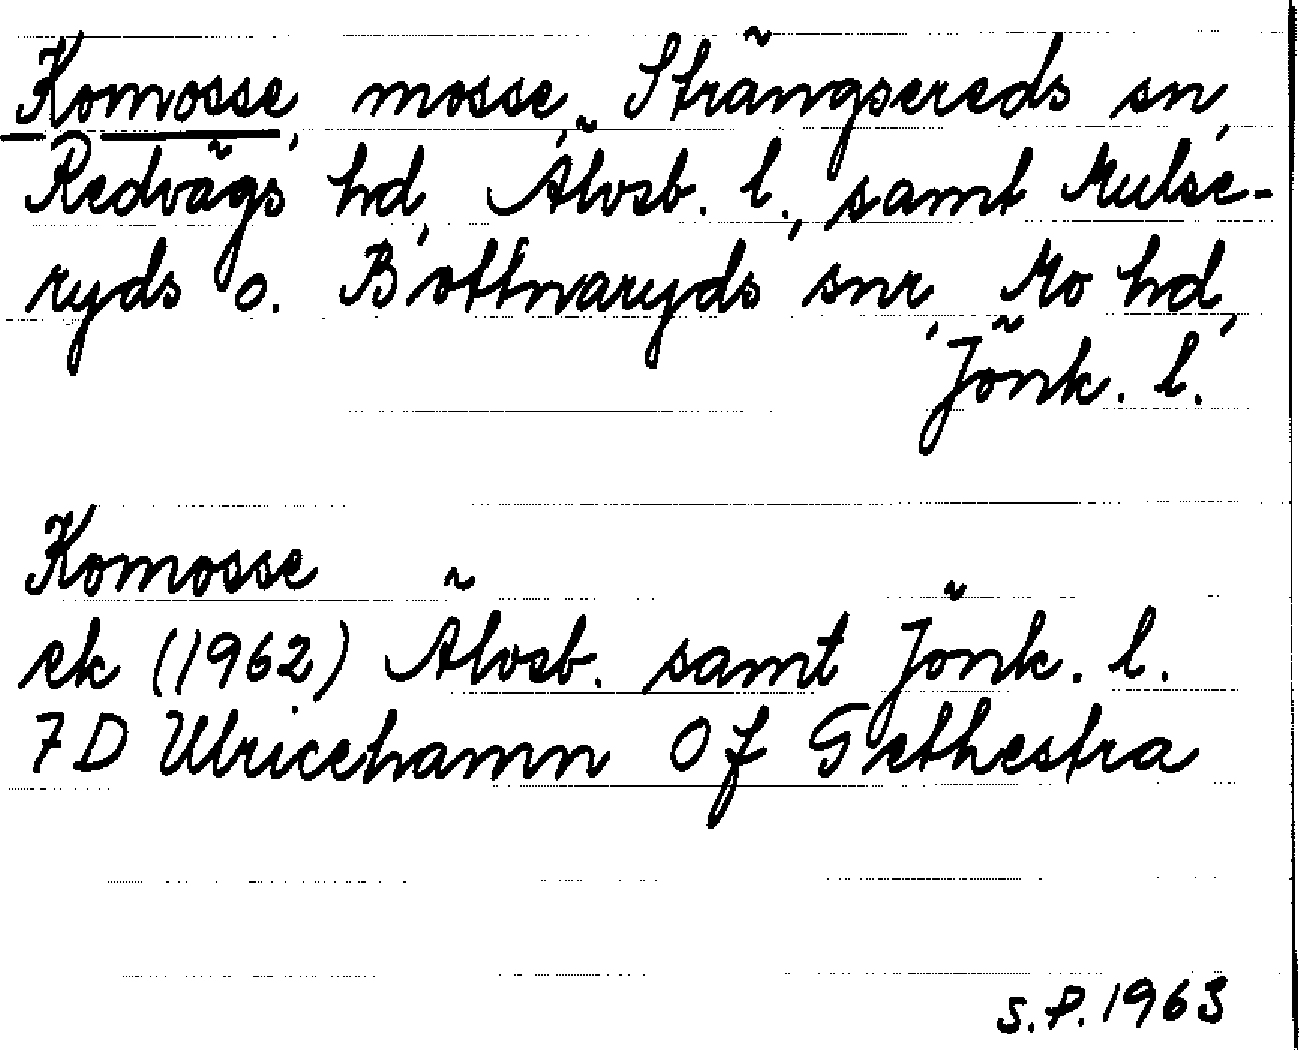 Komosse, mosse, Strängsereds sn,
Redvägs hd, Älvsb. l., samt Mulse-
ryds o. Bottnaryds snr, Mo hd,
Jönk. l.
Komosse
ek (1962) Älvsb. samt Jönk. l.
7D Ulricehamn 0f Grethestra
S.P. 1963